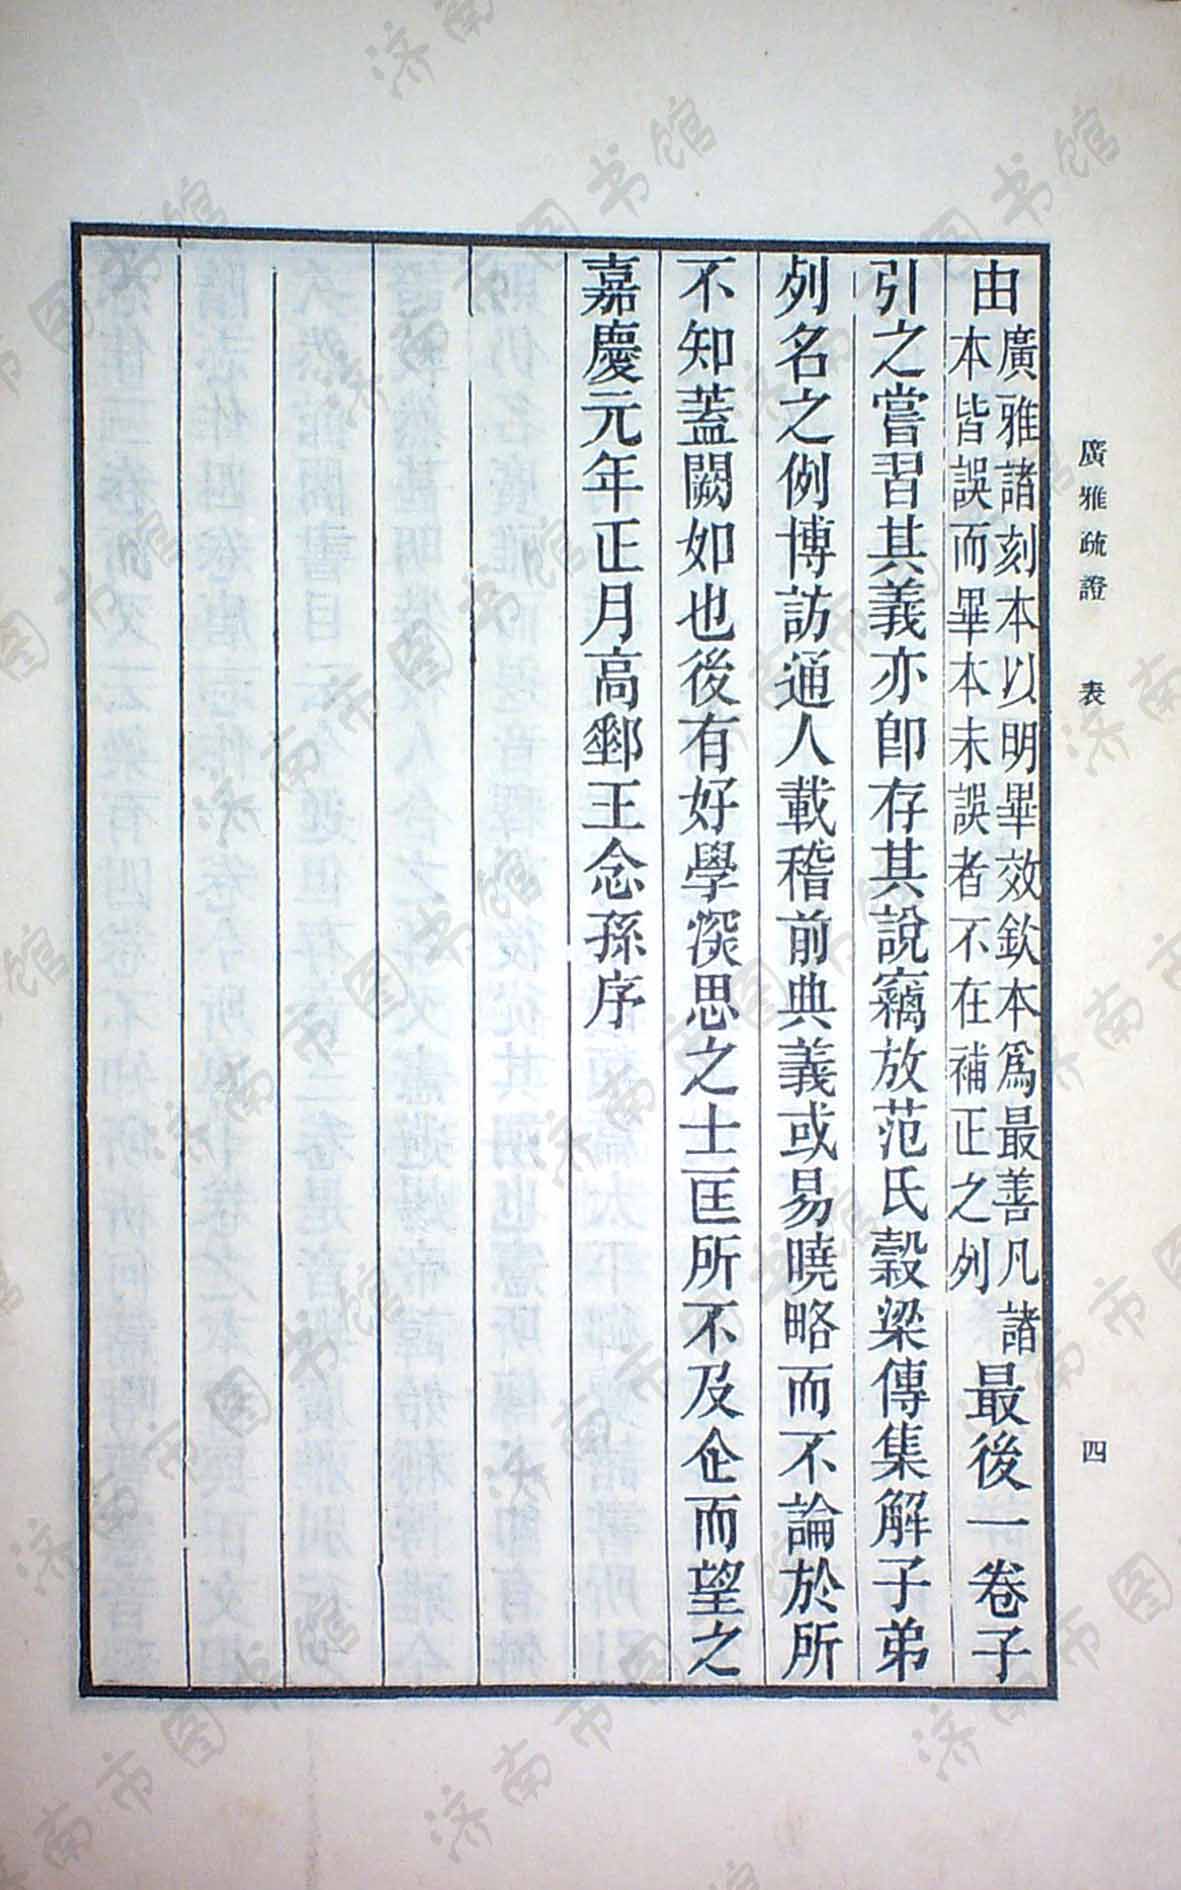 廣雅疏證　表　四
由廣雅諸刻本以明畢效欽本爲最善凡諸本皆誤而畢本未誤者不在補正之列最後一卷子
引之嘗習其義亦卽存其說竊放范氏穀梁傳集解子弟
列名之例博訪通人載稽前典義或易曉略而不論於所
不知蓋闕如也後有好學深思之士匡所不及企而望之
嘉慶元年正月高郵王念孫序
济南市图书馆